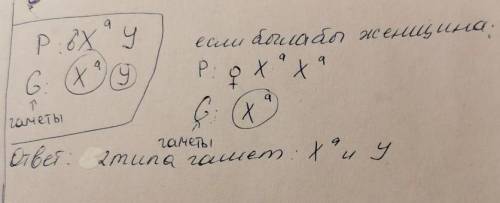 P: ♂ Xᵃ У
G: Xᵃ У
↑
гаметы
если была бы женщина:
P: ♀ Xᵃ Xᵃ
G: Xᵃ
↑
гаметы
Ответ: 2 типа гамет: Xᵃ и У